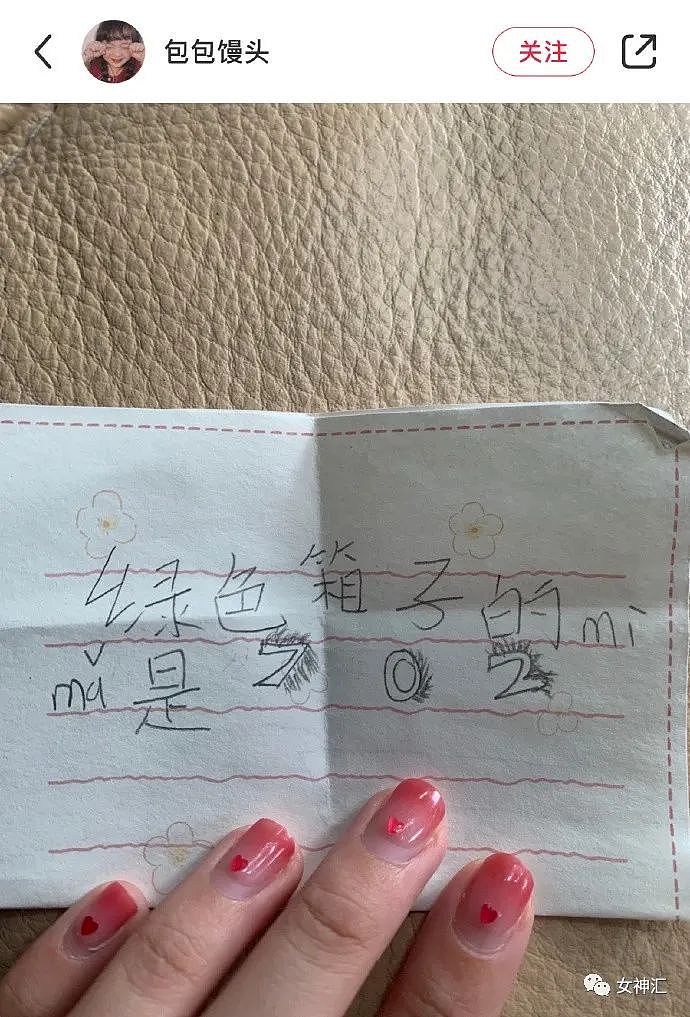 包包馒头
关注
绿色箱子的mì
mǎ是702
女神汇